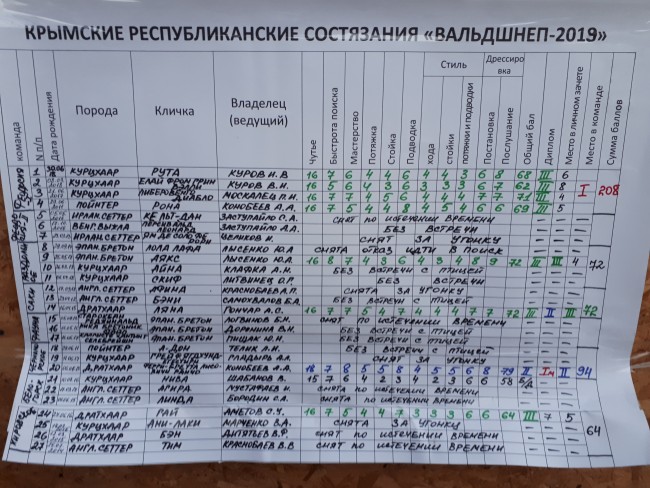 КРЫМСКИЕ РЕСПУБЛИКАНСКИЕ СОСТЯЗАНИЯ «ВАЛЬДШНЕП-2019»
команда N п/п Дата рождения Порода Кличка Владелец (ведущий) Чутье Быстрота поиска Мастерство Потяжка Стойка Подводка Стиль хода стойки потяжки и подводки Дрессировка Постановка Послушание Общий бал Диплом Место в личном зачете Место в команде Сумма баллов
1 КУРЦХААР РУТА КУРОВ И.В 16 7 6 4 4 6 4 4 3 6 8 68 III 6
2 КУРЦХААР КУРОВ В.И. 16 5 6 4 3 6 3 3 3 6 7 62 III 8 I 208
3 КУРЦХААР ДИАБЛО МОСКАЛЕЦ П.И. 16 7 7 4 5 6 4 4 4 7 7 71 III 4
4 ПОЙНТЕР РОНА КОНОБЕЕВ А.А. 16 7 5 4 4 8 69 III 5
5 ИРЛАН.СЕТТЕР ЗАСТУПАЙЛО С.А. СНЯТ ПО ИСТЕЧЕНИИ ВРЕМЕНИ
6 ВЕНГ.ВЫЖЛА ЗАСТУПАЙЛО А.А. БЕЗ ВСТРЕЧИ
7 ИРЛАН.СЕТТЕР СНЯТ ЗА УГОНКУ
8 ЭПАН.БРЕТОН ЛОЛА ЛЫСЕНКО Ю.А СНЯТА ОТКАЗ ИДТИ В ПОИСК
9 ЭПАН.БРЕТОН АЯКС ЛЫСЕНКО Ю.А. 16 8 7 4 3 6 4 3 4 8 9 72 III III 4 72
10 КУРЦХААР АЙНА КЛАФКА А.Н БЕЗ ВСТРЕЧИ С ПТИЦЕЙ
11 КУРЦХААР СКИФ ЛИТВИНЕЦ БЕЗ ВСТРЕЧИ
12 АНГЛ.СЕТТЕР КРАСНОБАЕВА СНЯТА ЗА УГОНКУ
13 АНГЛ.СЕТТЕР БЭНИ САМОХВАЛОВ Б.А. БЕЗ ВСТРЕЧИ С ПТИЦЕЙ
14 ДРАТХААР ЛЯНА ГОНЧАР А.С. 16 7 7 72 III II III 72
15 ЭПАН.БРЕТОН ИВАНОВ Б.Н. СНЯТ ПО ИСТЕЧЕНИИ ВРЕМЕНИ
16 ЭПАН.БРЕТОН ДОРОНИНА В.Н. БЕЗ ВСТРЕЧИ С ПТИЦЕЙ
17 ЭПАН.БРЕТОН ПИЩИК Ю.Н БЕЗ ВСТРЕЧИ С ПТИЦЕЙ
18 ПОЙНТЕР ТЕЛИК А.Н БЕЗ ВСТРЕЧИ С ПТИЦЕЙ
19 КУРЦХААР ГЛАДЫРЬ А.А. СНЯТ ЗА УГОНКУ
20 ДРАТХААР КОНОБЕЕВ А.А 18 7 8 5 5 8 4 5 5 6 8 79 II Iм II 94
21 КУРЦХААР НИВА ШАБАНОВ В. 15 7 6 4 2 3 4 2 3 6 6 58 б/д
22 АНГЛ.СЕТТЕР МУСТАФАЕВ Н СНЯТА ПО ИСТЕЧЕНИИ ВРЕМЕНИ
23 АНГЛ.СЕТТЕР ЛИНДА БОРОДИН С.А. СНЯТА ПО ИСТЕЧЕНИИ ВРЕМЕНИ
24 ДРАТХААР РАЙ АМЕТОВ С.У. 16 7 5 4 4 7 3 3 3 6 6 64 III 7 5
25 КУРЦХААР АНИ-ЛАКИ МАРЧЕНКО В.А. СНЯТА ЗА УГОНКУ 64
ДРАТХААР БЭН ДИТЯТЬЕВ В.Р. СНЯТ ПО ИСТЕЧЕНИИ ВРЕМЕНИ
АНГЛ.СЕТТЕР ТИМ КРАСНОБАЕВ В.В СНЯТ ПО ИСТЕЧЕНИИ ВРЕМЕНИ